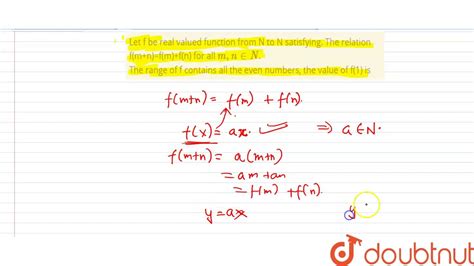 Let f be real valued function from N to N satisfying. The relation
f(m+n)=f(m)+f(n) for all m, n ∈ N.
The range of f contains all the even numbers, the value of f(1) is
f(m+n) = f(m) + f(n).
f(x) = ax. ⇒ a∈N.
f(m+n) = a(m+n)
= am+an
= f(m) + f(n).
y = ax y
doubtnut